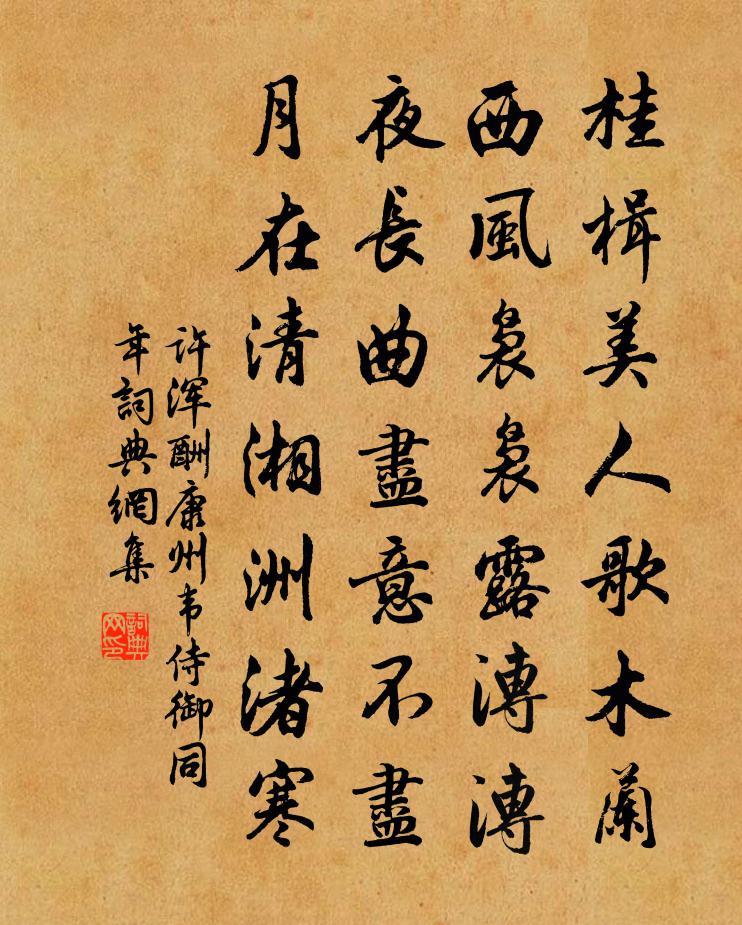 桂楫美人歌木蘭
西風裊裊露漙漙
夜長曲盡意不盡
月在清湘洲渚寒
许浑酬康州韦侍御同
年詞典網集
詞典網印